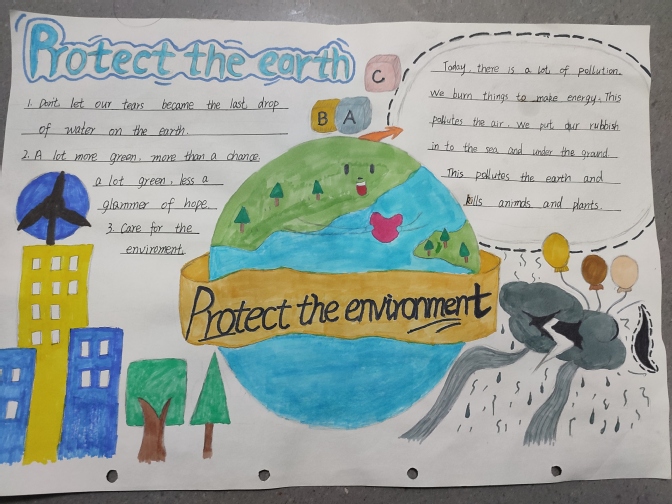 Protect the earth
1. Don't let our tears became the last drop
of water on the earth.
2. A lot more green, more than a chance,
a lot green, less a
glammer of hope.
3. Care for the
enviroment.
C
B A
Today, there is a lot of pollution.
We burn things to make energy. This
pollutes the air. We put our rubbish
in to the sea and under the ground.
This pollutes the earth and
kills animals and plants.
Protect the environment